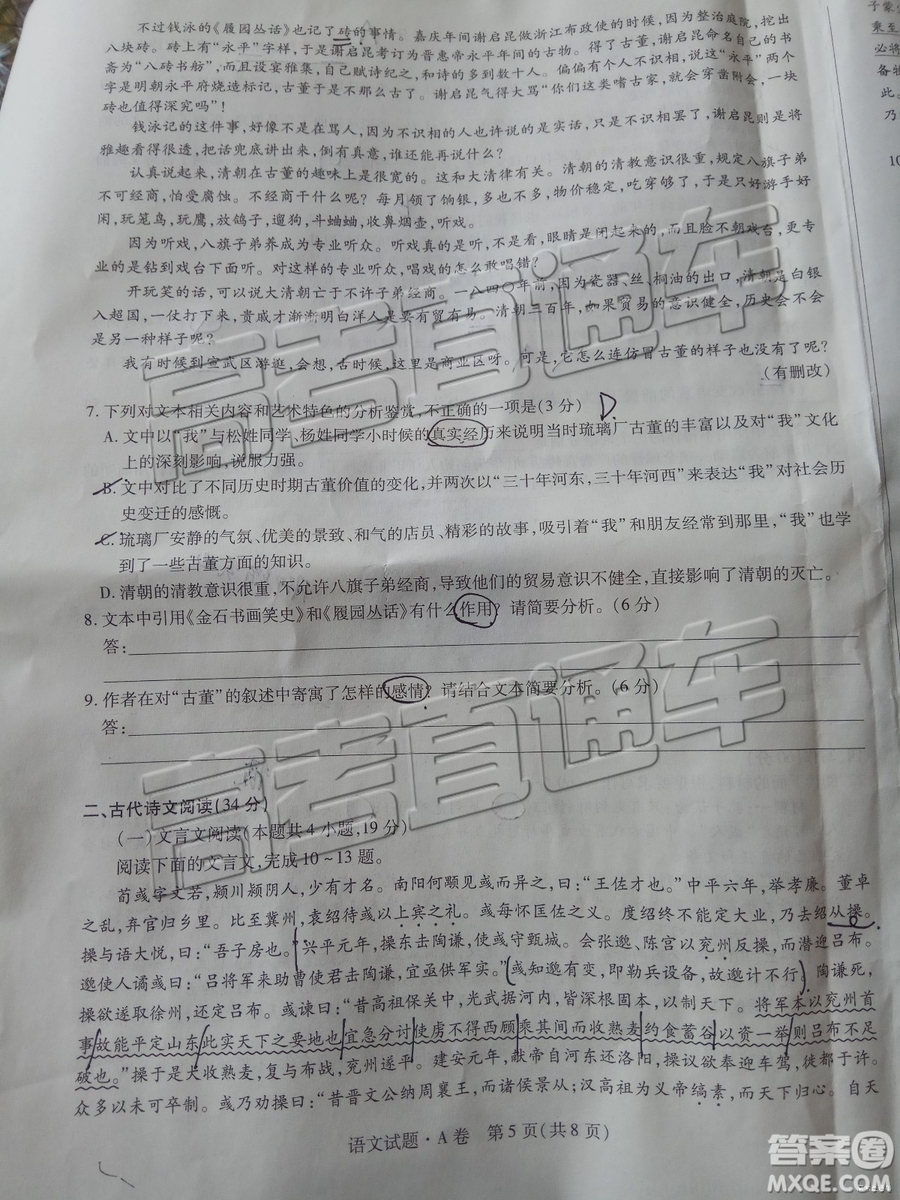 不过钱泳的《履园丛话》也记了砖的事情。嘉庆年间谢启昆做浙江布政使的时候，因为整治庭院，挖出
八块砖。砖上有“永平”字样，于是谢启昆考订为晋惠帝永平年间的古物。得了古董，谢启昆命名自己的书
斋为“八砖书舫”，而且设宴雅集，自己赋诗纪之，和诗的多到数十人。偏偏有个人不识相，说这“永平”两个
字是明朝永平府烧造标记，古董于是不那么古了。谢启昆气得大骂“你们这类嗜古家，就会穿凿附会，一块
砖也值得深究吗”！
钱泳记的这件事，好像不是在骂人，因为不识相的人也许说的是实话，只是不识相罢了，谢启昆则是将
雅趣看得很透彻，把话兜底讲出来，倒有真意，谁还能再说什么？
认真说起来，清朝在古董的趣味上是很宽的。这和大清律有关。清朝的清教意识很重，规定八旗子弟
不可经商，怕受腐蚀。不经商干什么呢？每月领了饷银，多也不多，物价稳定，吃穿够了，于是只好游手好
闲，玩笼鸟，玩鹰，放鸽子，遛狗，斗蛐蛐，收鼻烟壶，听戏。
因为听戏，八旗子弟养成为专业听众。听戏真的是听，不是看，眼睛是闭起来的，而且脸不朝戏台，更专
业的是钻到戏台下面听。对这样的专业听众，唱戏的怎么敢唱错？
开玩笑的话，可以说大清朝亡于不许子弟经商。一八四〇年前，因为瓷器、丝、桐油的出口，清朝是白银
入超国，一仗打下来，贵戚才渐渐明白洋人是要有贸有易。清朝三百年，如果贸易的意识健全，历史会不会
是另一种样子呢？
我有时候到宣武区游逛，会想，古时候，这里是商业区呀。可是，它怎么连仿冒古董的样子也没有了呢？
（有删改）
7. 下列对文本相关内容和艺术特色的分析鉴赏，不正确的一项是(3 分) D.
A. 文中以“我”与松姓同学、杨姓同学小时候的真实经历来说明当时琉璃厂古董的丰富以及对“我”文化
上的深刻影响，说服力强。
B. 文中对比了不同历史时期古董价值的变化，并两次以“三十年河东，三十年河西”来表达“我”对社会历
史变迁的感慨。
C. 琉璃厂安静的气氛、优美的景致、和气的店员、精彩的故事，吸引着“我”和朋友经常到那里，“我”也学
到了一些古董方面的知识。
D. 清朝的清教意识很重，不允许八旗子弟经商，导致他们的贸易意识不健全，直接影响了清朝的灭亡。
8. 文本中引用《金石书画笑史》和《履园丛话》有什么作用？请简要分析。(6 分)
答：
9. 作者在对“古董”的叙述中寄寓了怎样的感情？请结合文本简要分析。(6 分)
答：
二、古代诗文阅读(34 分)
(一)文言文阅读(本题共 4 小题，19 分)
阅读下面的文言文，完成 10～13 题。
荀彧字文若，颍川颍阴人，少有才名。南阳何颙见彧而异之，曰：“王佐才也。”中平六年，举孝廉。董卓
之乱，弃官归乡里。比至冀州，袁绍待彧以上宾之礼。彧每怀匡佐之义。度绍终不能定大业，乃去绍从操。
操与语大悦，曰：“吾子房也。”兴平元年，操东击陶谦，使彧守甄城。会张邈、陈宫以兖州反操，而潜迎吕布。
邈使人谲彧曰：“吕将军来助曹使君击陶谦，宜亟供军实。”彧知邈有变，即勒兵设备，故邈计不行。陶谦死，
操欲遂取徐州，还定吕布。彧谏曰：“昔高祖保关中，光武据河内，皆深根固本，以制天下。将军本以兖州首
事故能平定山东此实天下之要地也宜急分讨使虏不得西顾乘其间而收熟麦约食蓄谷以资一举则吕布不足
破也。”操于是大收熟麦，复与布战，兖州遂平。建安元年，献帝自河东还洛阳，操议欲奉迎车驾，徙都于许。
众多以未可卒制。彧乃劝操曰：“昔晋文公纳周襄王，而诸侯景从；汉高祖为义帝缟素，而天下归心。自天
语文试题·A 卷 第 5 页(共 8 页)
子蒙
乘至
必将
备物
此。
乃
10
高考直通车
高考直通车
答案圈
MXQE.COM